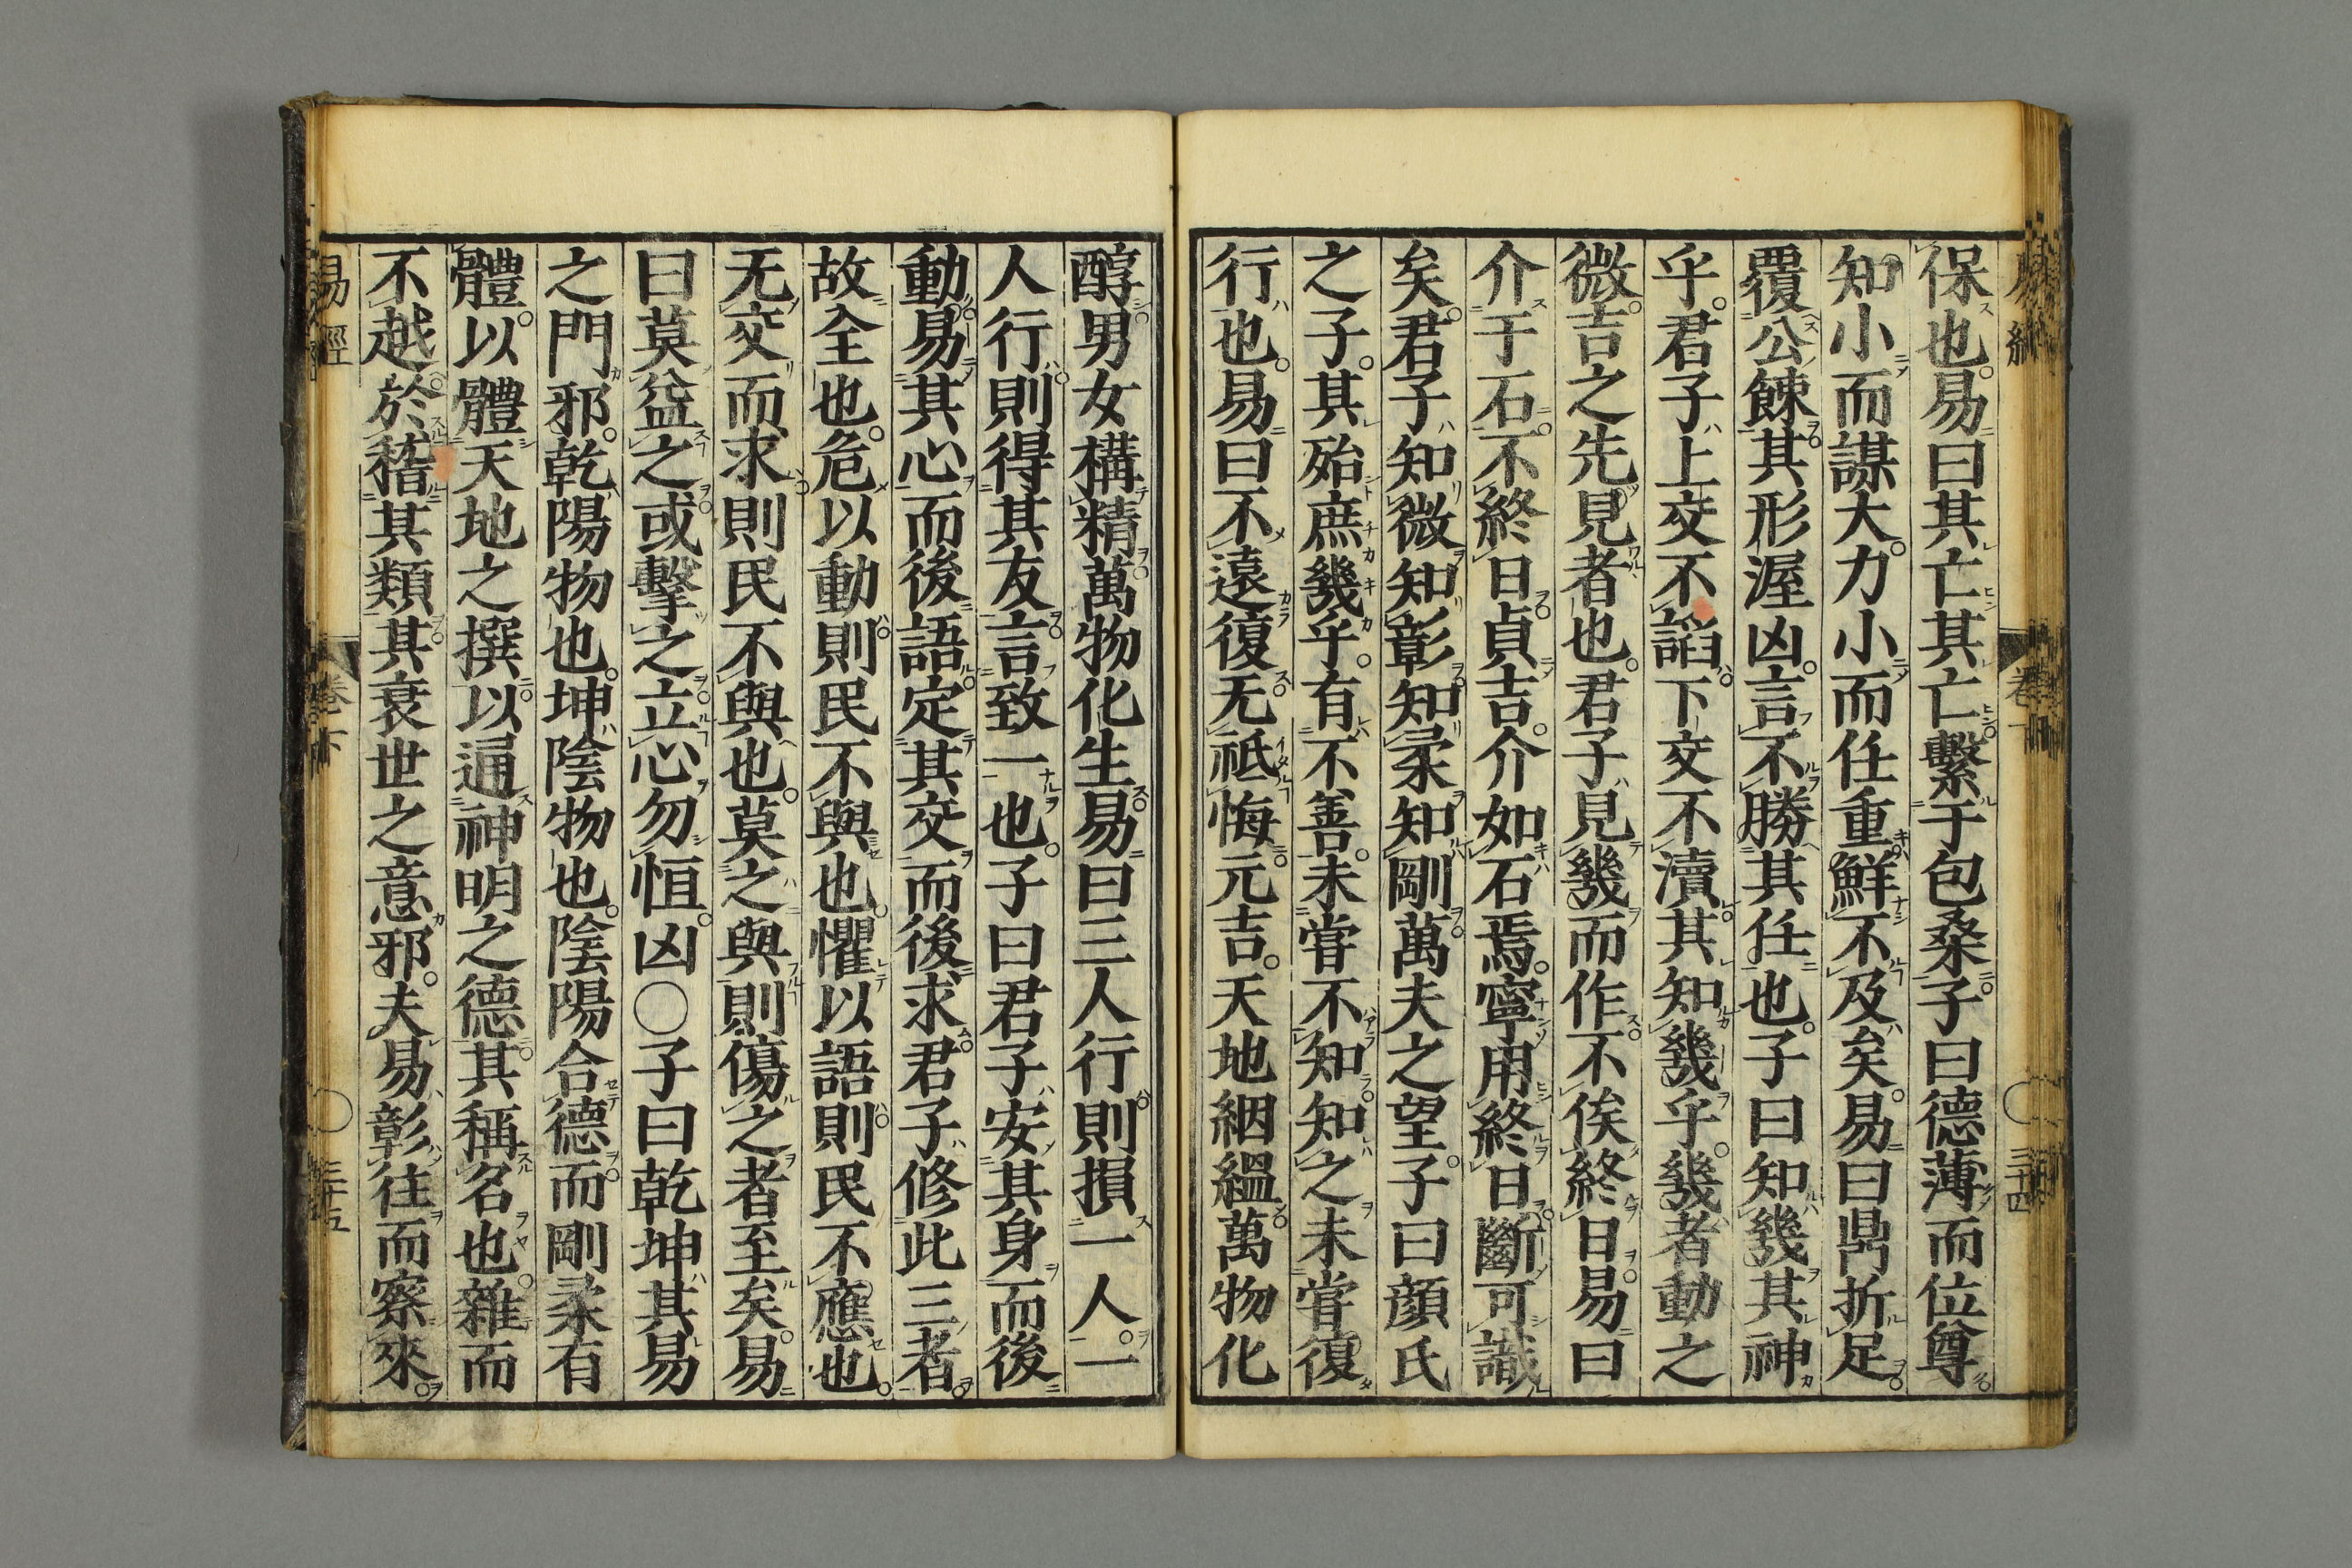 保也易曰其亡其亡繫于包桑子曰德薄而位尊
知小而謀大力小而任重鮮不及矣易曰鼎折足
覆公餗其形渥凶言不勝其任也子曰知幾其神
乎君子上交不諂下交不瀆其知幾乎幾者動之
微吉之先見者也君子見幾而作不俟終日易曰
介于石不終日貞吉介如石焉寧用終日斷可識
矣君子知微知彰知柔知剛萬夫之望子曰顔氏
之子其殆庶幾乎有不善未嘗不知知之未嘗復
行也易曰不遠復无祗悔元吉天地絪縕萬物化
醇男女構精萬物化生易曰三人行則損一人一
人行則得其友言致一也子曰君子安其身而後
動易其心而後語定其交而後求君子修此三者
故全也危以動則民不與也懼以語則民不應也
无交而求則民不與也莫之與則傷之者至矣易
曰莫益之或擊之立心勿恒凶○子曰乾坤其易
之門邪乾陽物也坤陰物也陰陽合德而剛柔有
體以體天地之撰以通神明之德其稱名也雜而
不越於稽其類其衰世之意邪夫易彰往而察來
易經 卷下 ○ 三十五